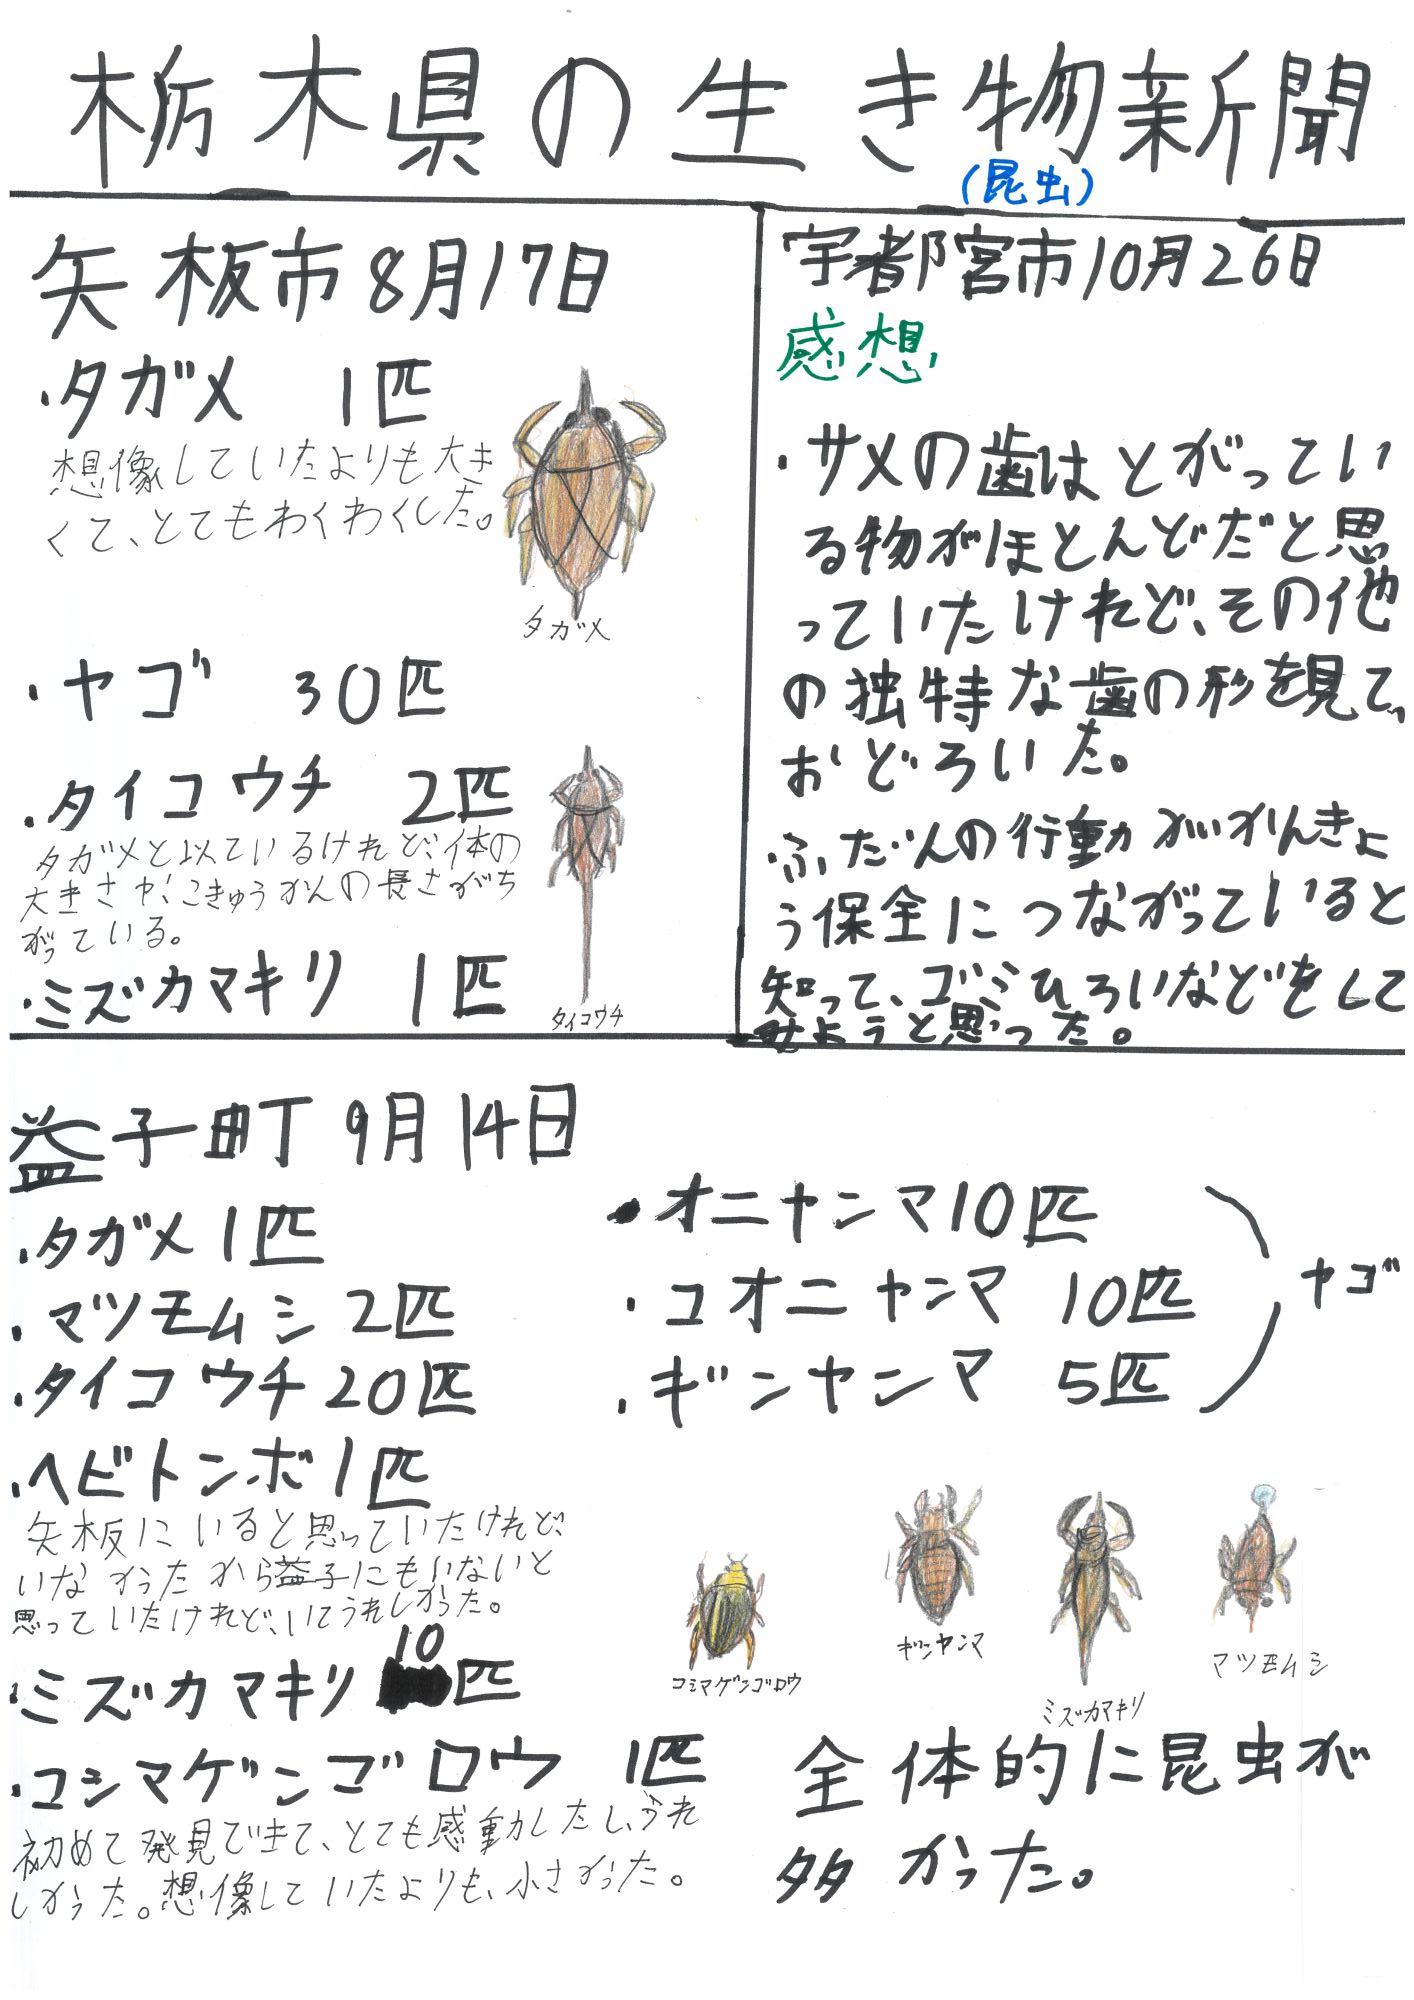 栃木県の生き物新聞
(昆虫)
矢板市8月17日
・タガメ 1匹
想像していたよりも大き
くて、とてもわくわくした。
タガメ
・ヤゴ 30匹
・タイコウチ 2匹
タガメと似ているけれど、体の
大きさや、こきゅうかんの長さがち
がっている。
・ミズカマキリ 1匹
タイコウチ
宇都宮市10月26日
感想
・サメの歯はとがってい
る物がほとんどだと思
っていたけれど、その他
の独特な歯の形を見て、
おどろいた。
・ふだんの行動がかんきょ
う保全につながっていると
知って、ゴミひろいなどをして
みようと思った。
益子町9月14日
・タガメ1匹
・マツモムシ2匹
・タイコウチ20匹
・ヘビトンボ1匹
矢板にいると思っていたけれど、
いなかったから益子にもいないと
思っていたけれど、いてうれしかった。
・ミズカマキリ10匹
・コシマゲンゴロウ 1匹
初めて発見できて、とても感動したし、うれ
しかった。想像していたよりも、小さかった。
・オニヤンマ10匹
・コオニヤンマ 10匹
・ギンヤンマ 5匹
ヤゴ
コシマゲンゴロウ
ギンヤンマ
ミズカマキリ
マツモムシ
全体的に昆虫が
多かった。